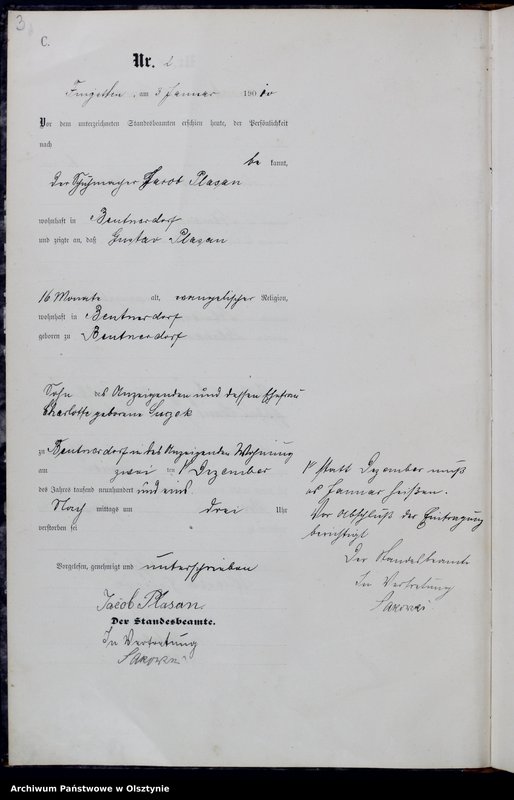 3
C.
Nr. 2
am 3 Januar 190
Vor dem unterzeichneten Standesbeamten erschien heute, der Persönlichkeit
nach
be kannt,
der Schuhmacher Jacob Plasan
wohnhaft in Bentnerdorf
und zeigte an, daß Gustav Plasan
16 Monate alt, evangelischer Religion,
wohnhaft in Bentnerdorf
geboren zu Bentnerdorf
Sohn des Anzeigenden und dessen Ehefrau
Charlotte geborene
zu Bentnerdorf in des Anzeigenden Wohnung
am zwei ten Dezember
des Jahres tausend neunhundert und eins
Nach mittags um drei Uhr
verstorben sei
Vorgelesen, genehmigt und unterschrieben
Jacob Plasan
Der Standesbeamte.
In Vertretung
statt Dezember muß
es Januar heißen.
Vor Abschluß der Eintragung
berichtigt
Der Standesbeamte
In Vertretung
Archiwum Państwowe w Olsztynie